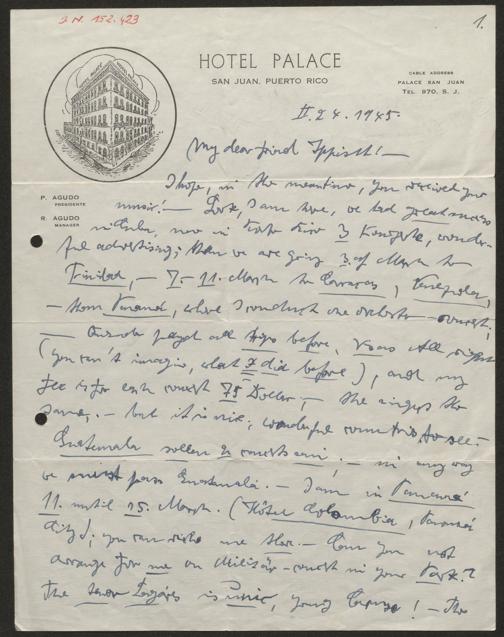 J.N. 152.423
1.
HOTEL PALACE
SAN JUAN, PUERTO RICO
CABLE ADDRESS
PALACE SAN JUAN
TEL. 970, S. J.
P. AGUDO
PRESIDENTE
R. AGUDO
MANAGER
II. 24. 1945.
My dear friend Ippisch! —
I hope, in the meantime, you received your
music! — Look, I am here, we had great success
in Cuba, now in Porto Rico 3 Konzerte, wonder-
ful advertising; then we are going 3. of March to
Trinidad, — 7. — 11. March to Caracas, Venezuela,
— then Panamá, where I conduct one orchester — concert,
— payed all trips before, was all right
(you can't imagine, what I did before), and my
fee is for each concert 75 Dollar; — the singers the
same, — but it is nice, wonderful countries to see —
Guatemala sollen 2 concerts sein, — in any way
we must pass Guatemala. — I am in Panamá
11. until 15. March. (Hôtel Colombia, Panamá
City); you can write me there. — Can you not
arrange for me an Militär-concert in your Park?
The tenor is young ! — The